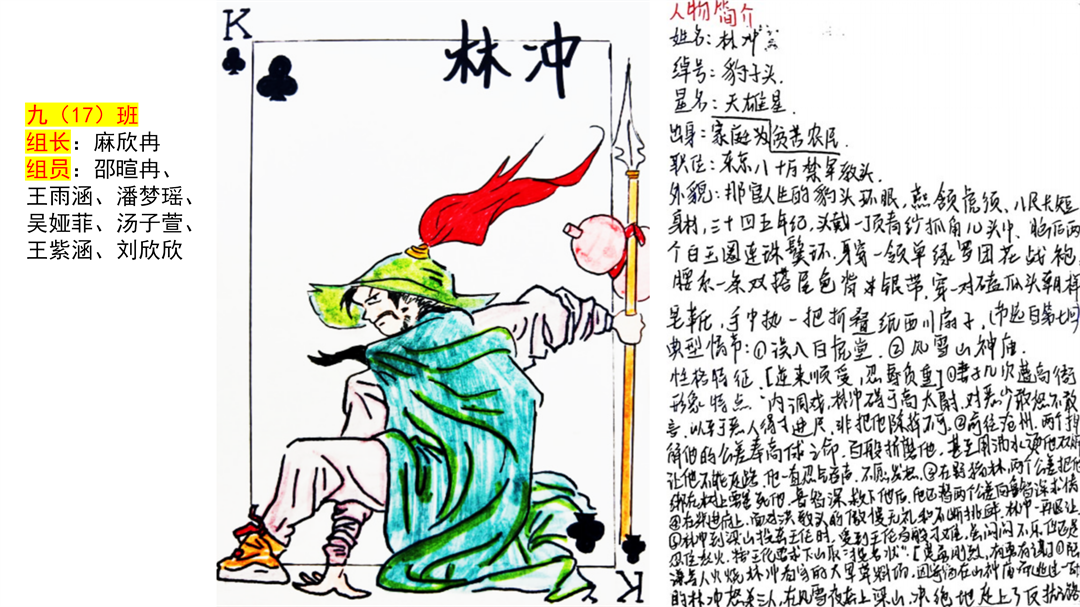 九（17）班
组长：麻欣冉
组员：邵暄冉、
王雨涵、潘梦瑶、
吴娅菲、汤子萱、
王紫涵、刘欣欣
K
林冲
K
人物简介
姓名：林冲
绰号：豹子头.
星名：天雄星.
出身：家庭为贫苦农民.
职位：东京八十万禁军教头.
外貌：那官人生的豹头环眼，燕颔虎须、八尺长短
身材，三十四五年纪，头戴一顶青纱抓角儿头巾、脑后两
个白玉圈连珠鬓环.身穿一领单绿罗团花战袍，
腰系一条双搭尾龟背银带，穿一对磕瓜头朝样
皂靴，手中执一把折叠纸西川扇子，(节选自第七回
典型情节：①误入白虎堂.②风雪山神庙.
性格特征.[逆来顺受，忍辱负重]①妻子几次遭高衙
形象特点.内调戏，林冲碍于高太尉.对恶少敢怒不敢
言.以至于恶人得寸进尺.非把他除掉不可.②前往沧州.两个押
解他的公差奉高俅之命.百般折磨他.甚至用沸水
让他不能走路.他一直忍气吞声.不愿发怒.③在野猪林,两个公差把他
绑在树上要害死他.鲁智深救下他后,他还替两个公差向鲁智深求情
④在柴进庄上,面对洪教头的傲慢无礼和不断挑衅,林冲一再退让.
⑤林冲到梁山投奔王伦时,受到王伦百般刁难,
忍住怒火,按王伦要求下山取"投名状".
林冲看守的大军草料场,
的林冲怒杀三人,在风雪夜去上梁山,走上了反抗